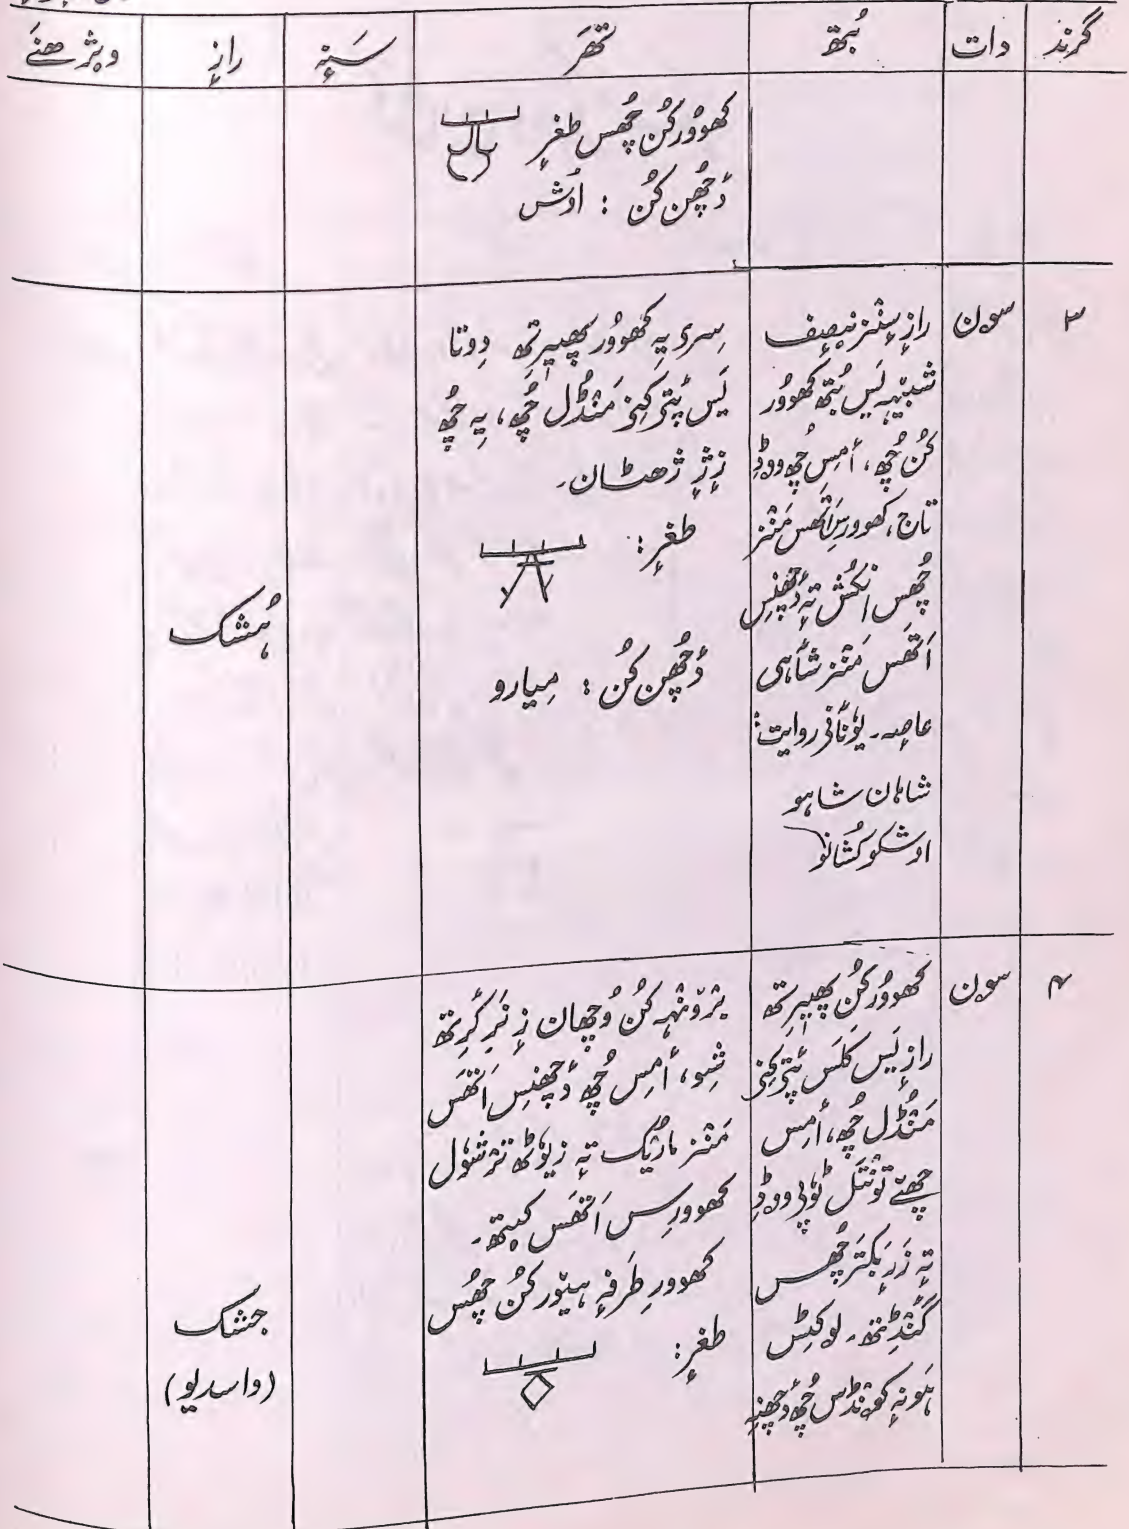 گرند
دات
بُتھ
تھَر
سَنہٕ
رازٕ
ویژھنَے
کھووُرکُن چُھس طغرٕ
دٔچھن کُن : اوٚش
۳
سون
رازٕ سٕنز نیصٕف
شبیٖہہ یَس بُتھ کھووُر
کُن چُھ، اَمِس چُھ ووڈِ
تاج، کھوورِس اَتھَس مَنٛز
چُھس انکُش تہٕ دٔچھنِس
اَتھَس مَنٛز شاہی
عاصہ۔ یوٗنٲنی روایت:
شاہان شاہو
اوشکو کُشانو
سِری یہِ کھووُر پھیٖرِتھ دِوتا
یَس پٔتۍ کِنۍ مَنڈُل چُھ، یہِ چُھ
زٕژٕ ژھٹان۔
طغرٕ:
دٔچھن کُن : مِیارو
ہُشک
۴
سون
کھووُرکُن پھیٖرِتھ
رازٕ یَس کَلَس پٔتۍ کِنۍ
مَنڈُل چُھ، اَمِس
چھےٚ تونتَل ٹوٗپۍ ووڈِ
تہٕ زَرٕ بَکتَر چُھس
گَنٛڈِتھ۔ لوکٹِس
ہَونہٕ کونڈس چُھ دٔچھنہِ
برٛونٛہہ کُن وُچھان زٕ نَرٕ کٔرِتھ
شِو، اَمِس چُھ دٔچھنِس اَتھَس
مَنٛز مارٕیُک تہٕ زیوٗٹھ ترٛشوٗل
کھوورِس اَتھَس کیتھ۔
کھوور طَرفہٕ ہیوٚر کُن چُھس
طغرٕ:
جشک
(واسدیو)